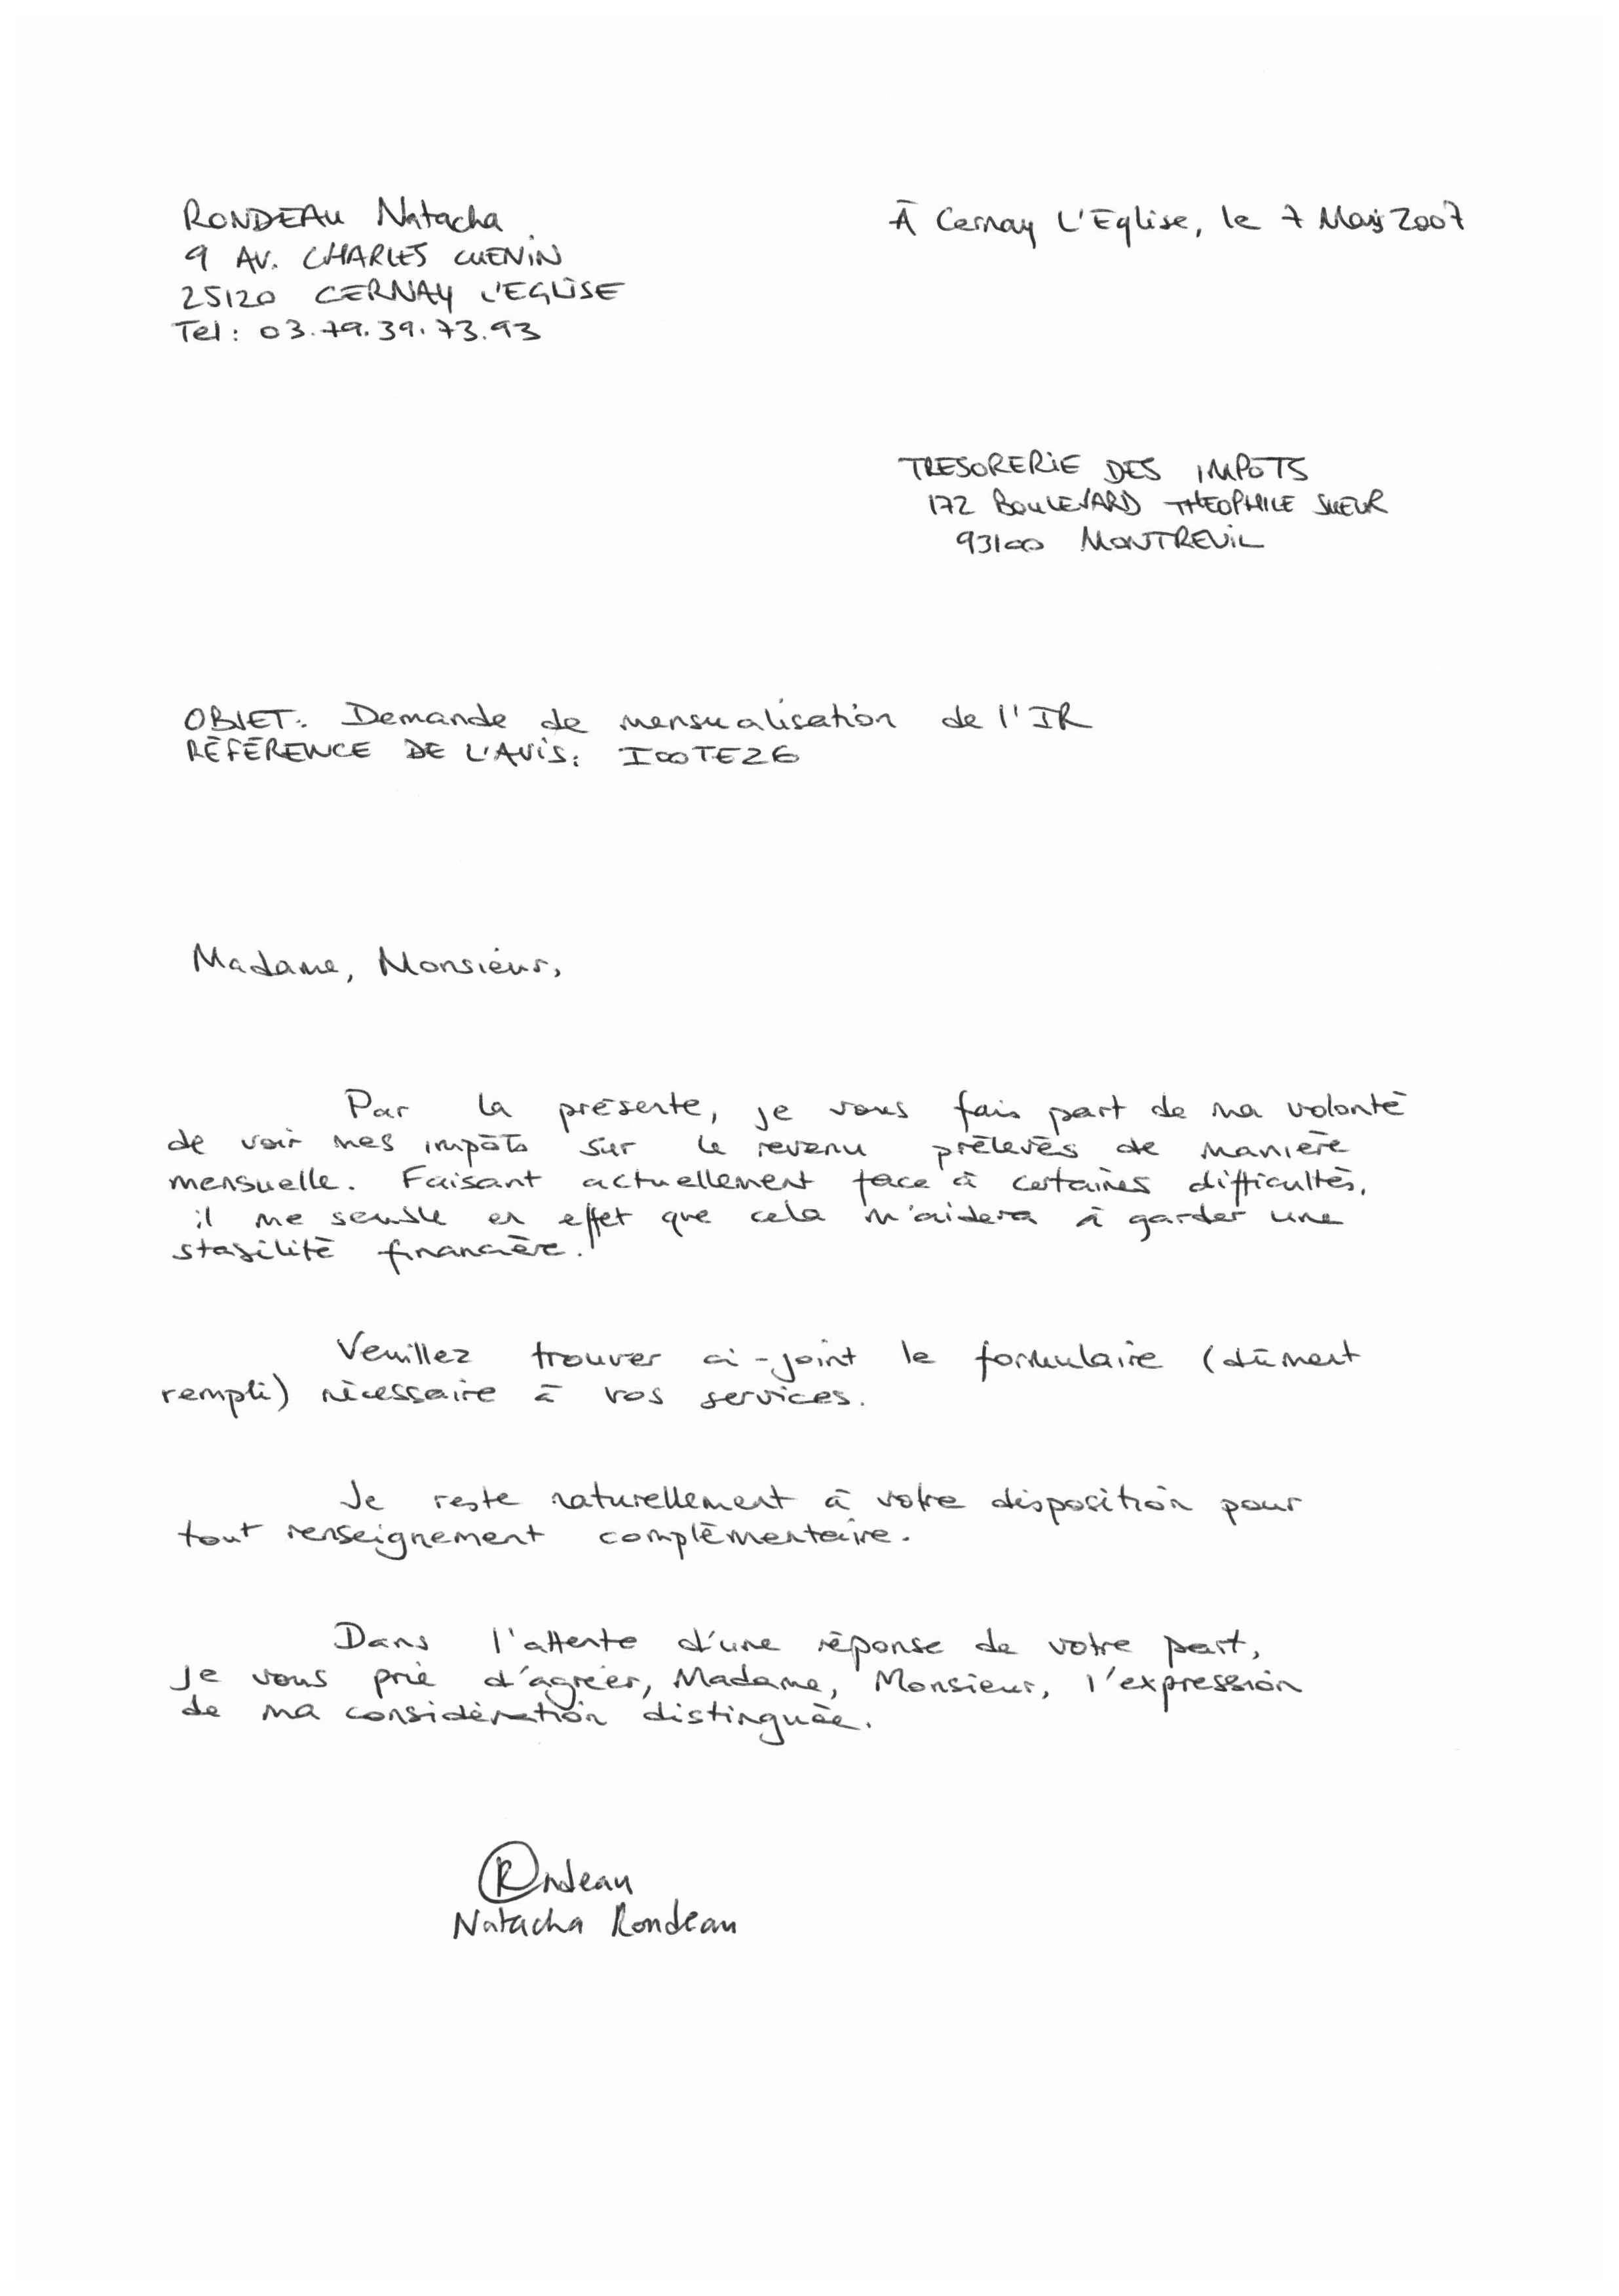 RONDEAU Natacha
9 AV. CHARLES CUENIN
25120 CERNAY L'EGLISE
Tel : 03.79.39.73.93
À Cernay L'Eglise, le 7 2007
TRESORERIE DES IMPOTS
172 BOULEVARD THEOPHILE SUEUR
93100 MONTREUIL
OBJET: Demande de mensualisation de l'IR
RÉFÉRENCE DE L'AVIS: I00TE26
Madame, Monsieur,
Par la présente, je vous fais part de ma volonté
de voir mes impôts sur le revenu prélevés de manière
mensuelle. Faisant actuellement face à certaines difficultés,
il me semble en effet que cela m'aidera à garder une
stabilité financière.
Veuillez trouver ci-joint le formulaire (dûment
rempli) nécessaire à vos services.
Je reste naturellement à votre disposition pour
tout renseignement complémentaire.
Dans l'attente d'une réponse de votre part,
je vous prie d'agréer, Madame, Monsieur, l'expression
de ma considération distinguée.
Rondeau
Natacha Rondeau